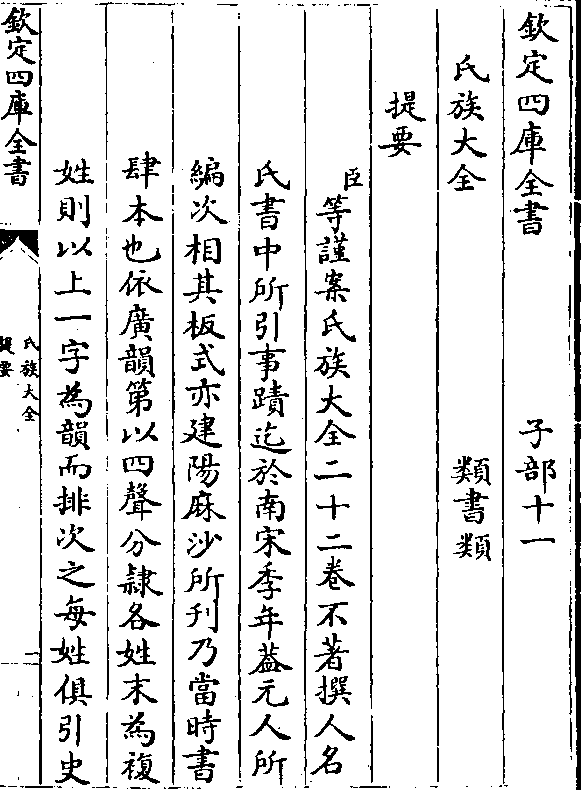 欽定四庫全書　子部十一
氏族大全　類書類
提要
臣等謹案氏族大全二十二卷不著撰人名
氏書中所引事蹟迄於南宋季年葢元人所
編次相其板式亦建陽麻沙所刋乃當時書
肆本也依廣韻第以四聲分隷各姓末為複
姓則以上一字為韻而排次之每姓俱引史
欽定四庫全書
氏族大全
提要
一